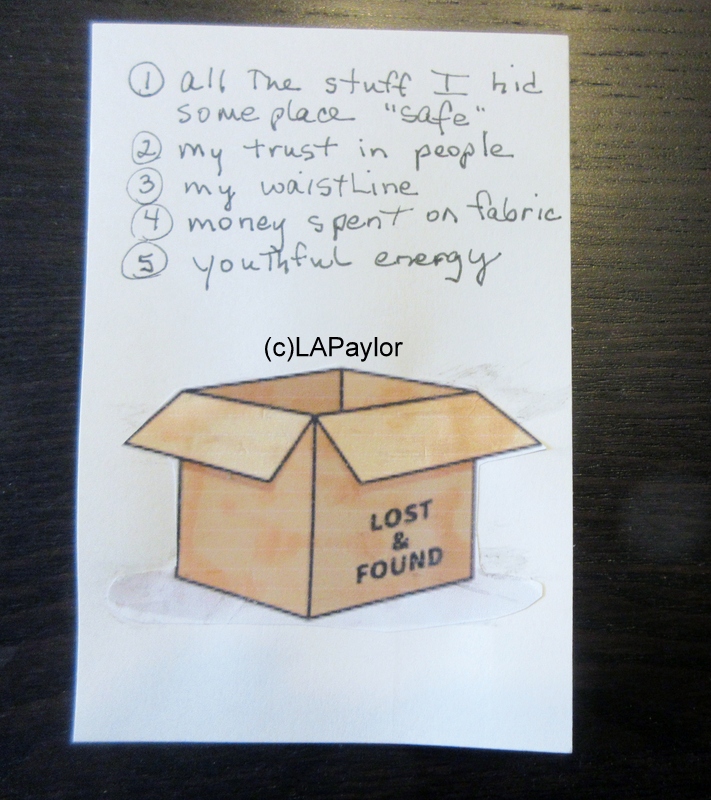 ① all The stuff I hid
some place "safe"
② my trust in people
③ my waistline
④ money spent on fabric
⑤ youthful energy
(c)LAPaylor
LOST
&
FOUND